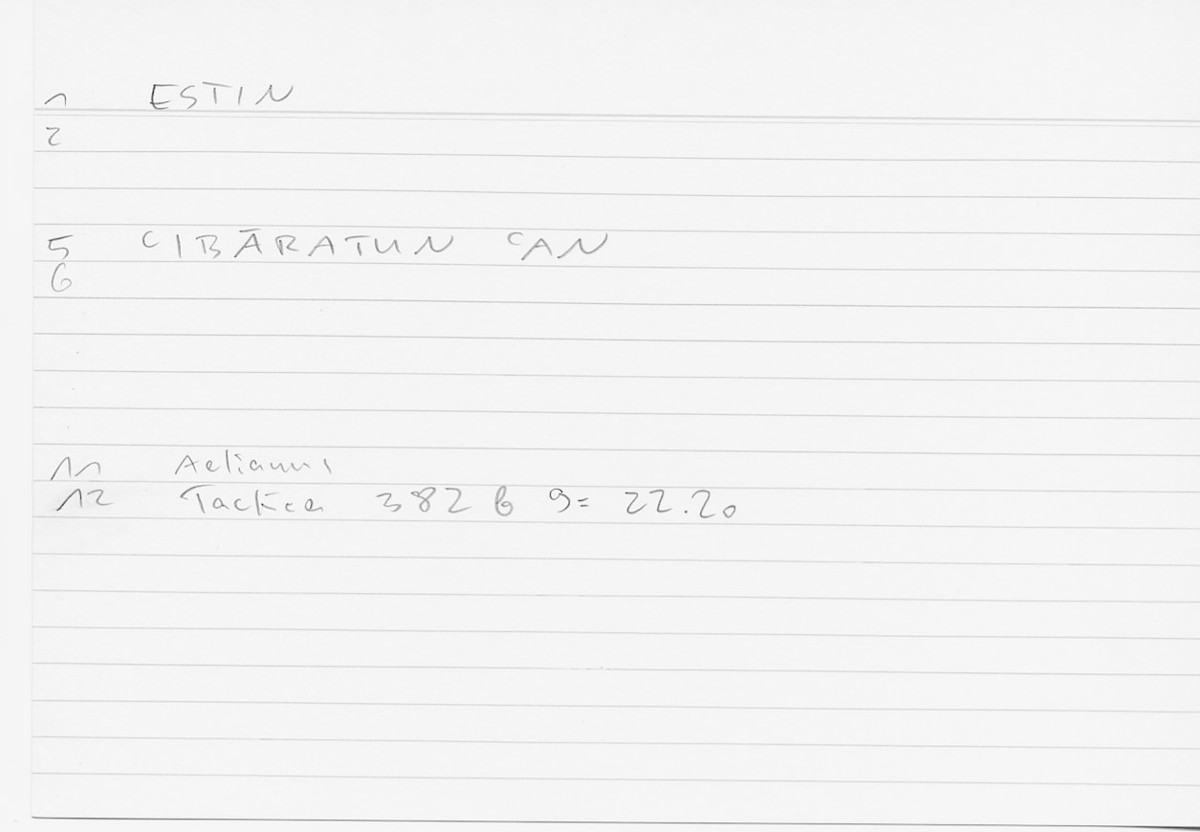 1 ESTIN
2
5 ᶜIBĀRATUN ᶜAN
6
11 Aelianus
12 Tactica 382 b 9 = 22.20